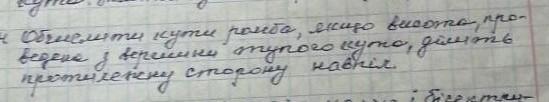 Обчислити кути ромба, якщо висота, про-
ведена з вершини тупого кута, ділить
протилежну сторону навпіл.